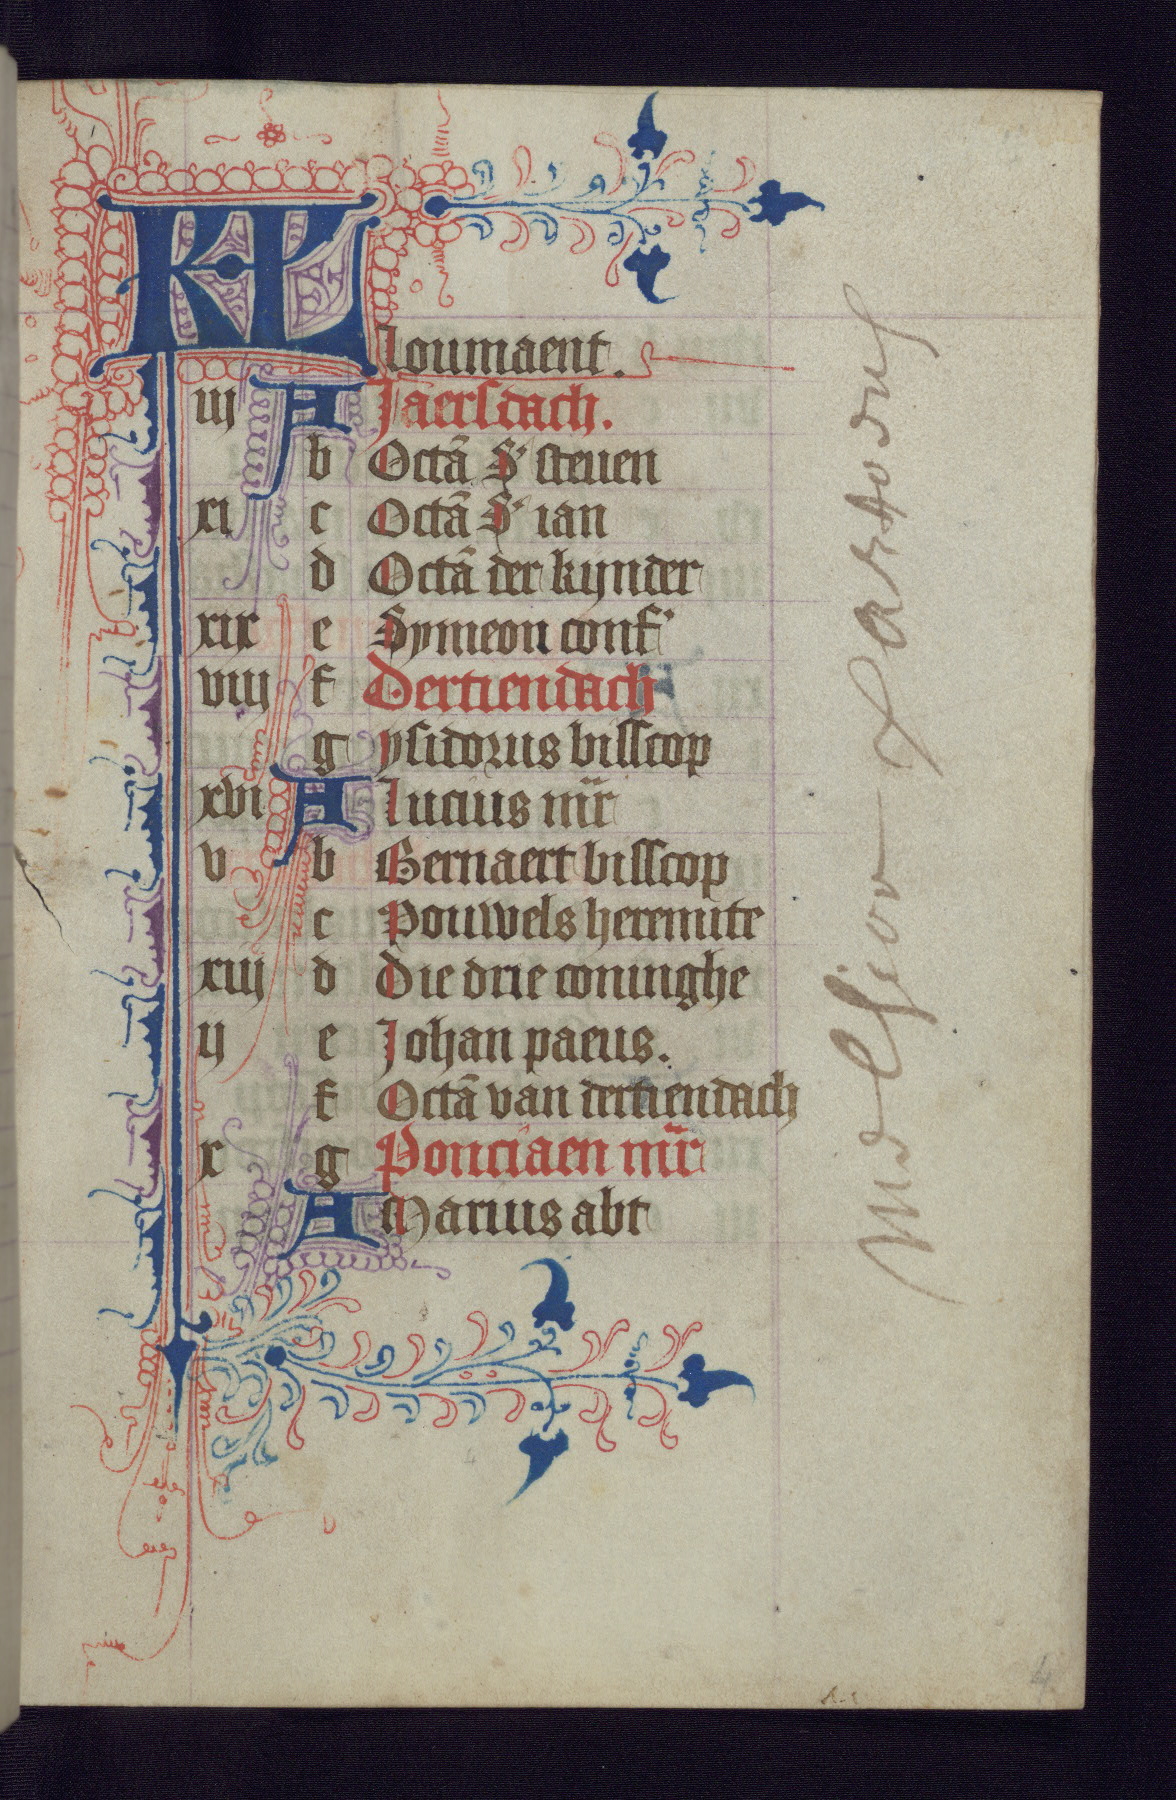 KL Loumaent.
iij A Jaersdach.
b Octā S' steuen
xi c Octā S' ian
d Octā der kijnder
xix e Symeon conf'
viij f Dertiendach
g ysidorus bisscop
xvi A Lucius mr̄
v b Gernaert bisscop
c Pouwels heremite
xiij d Die drie coninghe
ij e Johan paeus.
f Octā van dertiendach
x g Ponciaen mr̄
A Marius abt